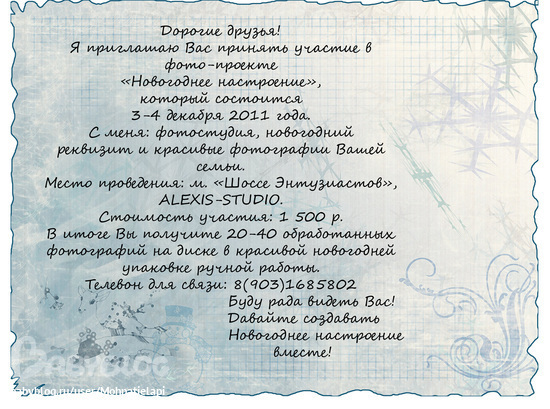 Дорогие друзья!
Я приглашаю Вас принять участие в
фото-проекте
«Новогоднее настроение»,
который состоится
3-4 декабря 2011 года.
С меня: фотостудия, новогодний
реквизит и красивые фотографии Вашей
семьи.
Место проведения: м. «Шоссе Энтузиастов»,
ALEXIS-STUDIO.
Стоимость участия: 1 500 р.
В итоге Вы получите 20-40 обработанных
фотографий на диске в красивой новогодней
упаковке ручной работы.
Телевон для связи: 8(903)1685802
Буду рада видеть Вас!
Давайте создавать
Новогоднее настроение
вместе!